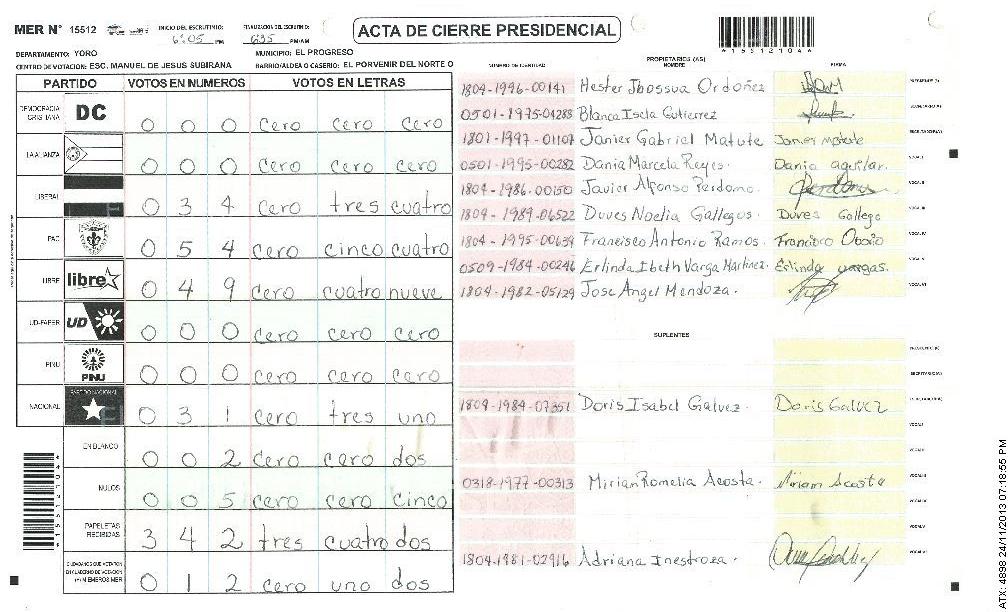 MER N° 15512
INICIO DEL ESCRUTINIO: 6:05 PM
FINALIZACION DEL ESCRUTINIO: 635 PM/AM
ACTA DE CIERRE PRESIDENCIAL
DEPARTAMENTO: YORO
MUNICIPIO: EL PROGRESO
CENTRO DE VOTACION: ESC. MANUEL DE JESUS SUBIRANA
BARRIO/ALDEA O CASERIO: EL PORVENIR DEL NORTE O
PARTIDO VOTOS EN NUMEROS VOTOS EN LETRAS
DEMOCRACIA CRISTIANA DC 0 0 0 cero cero cero
LA ALIANZA 0 0 0 cero cero cero
LIBERAL 0 3 4 cero tres cuatro
PAC 0 5 4 cero cinco cuatro
LIBRE libre 0 4 9 cero cuatro nueve
UD-FAPER UD 0 0 0 cero cero cero
PINU PINU 0 0 0 cero cero cero
NACIONAL PARTIDO NACIONAL 0 3 1 cero tres uno
EN BLANCO 0 0 2 cero cero dos
NULOS 0 0 5 cero cero cinco
PAPELETAS RECIBIDAS 3 4 2 tres cuatro dos
CIUDADANOS QUE VOTARON EN CUADERNO DE VOTACION (*) MIEMBROS MER 0 1 2 cero uno dos
PROPIETARIOS (AS)
NUMERO DE IDENTIDAD NOMBRE FIRMA
1804-1996-00141 Hester Jbossua Ordoñez
0501-1975-04283 Blanca Iscla Gutierrez
1801-1997-01107 Janier Gabriel Matute Janier matute
0501-1995-00282 Dania Marcela Reyes. Dania aguilar.
1804-1986-00150 Javier Alfonso Perdomo.
1804-1989-06522 Duves Noelia Gallegos. Duves Gallego
1804-1995-00639 Francisco Antonio Ramos. Francisco
0509-1984-00246 Erlinda Ibeth Varga Martinez. Erlinda vargas.
1804-1982-05129 Jose Angel Mendoza.
SUPLENTES
1804-1984-07351 Doris Isabel Galvez. Doris Galvez
0318-1977-00313 Mirian Romelia Acosta. Miriam Acosta
1804-1981-02916 Adriana Inestroza.
ATX: 4898 24/11/2013 07:18:55 PM